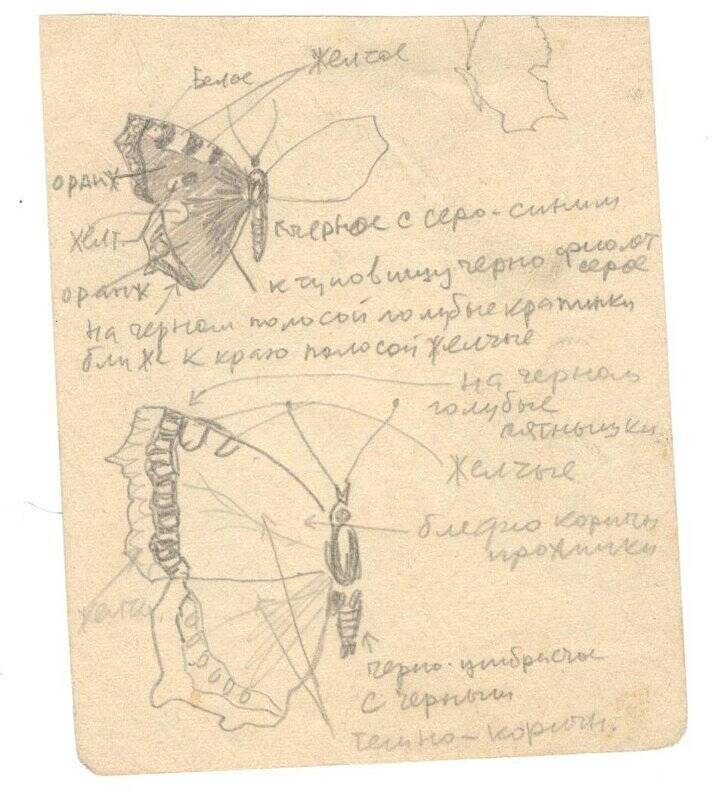 Желтое
Белое
оранж
желт.
оранж
черное с серо-синим
к туловищу черно фиолет
серое
на черном полосой голубые крапинки
ближе к краю полосой желтые
на черном
голубые
пятнышки
Желтые
бледно коричн
прожилки
желт.
черно-умбристое
с черным
темно-коричн.